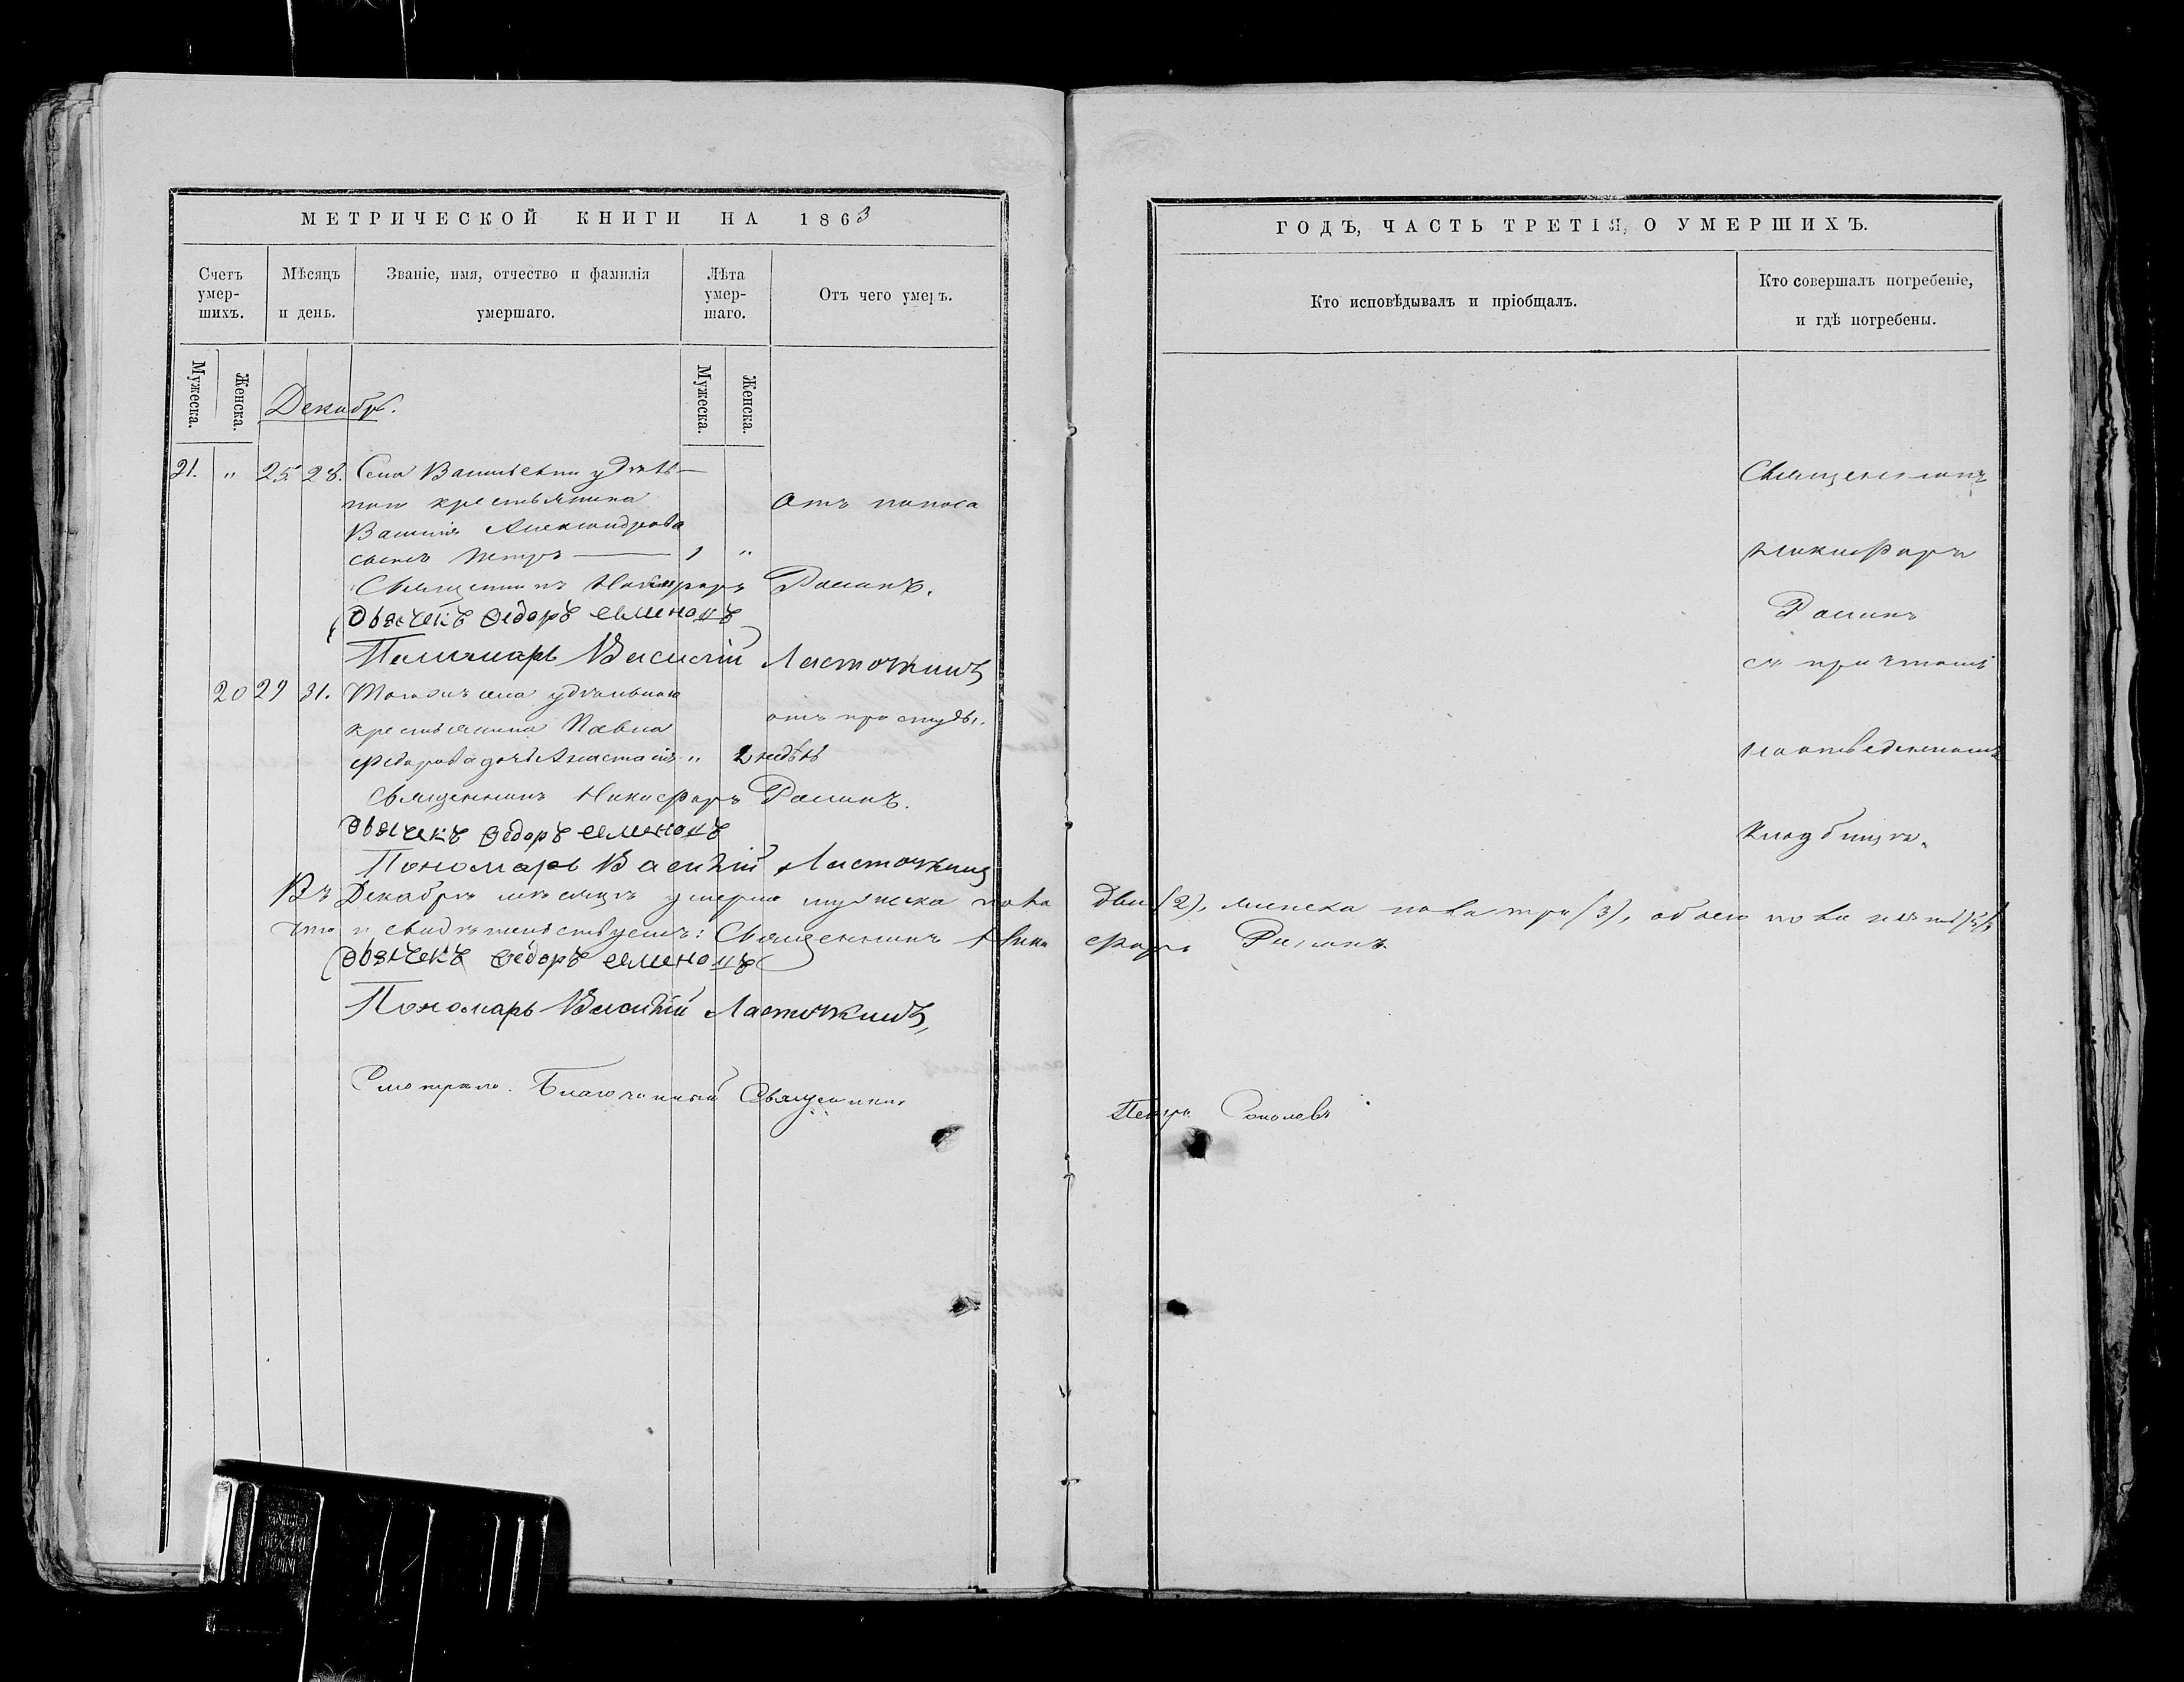 МЕТРИЧЕСКОЙ КНИГИ НА 1863
Счетъ умер-шихъ.
Мѣсяцъ и день.
Званіе, имя, отчество и фамилія умершаго.
Лѣта умер-шаго.
Отъ чего умеръ.
Мужеска.
Женска.
Мужеска.
Женска.
Декабрь.
21. „ 25 28. Села Василевки удѣль-
наго крестьянина Отъ поноса
Василія Александрова
сынъ Петръ — 1 „
Священникъ Никифоръ
Дьячекъ Ѳедоръ
Пономарь Василій Ласточкинъ
20 29 31. Тогожъ села удѣльнаго
крестьянина Павла отъ простуды.
Федорова дочь Анастасія „ 2 недѣль
Священникъ Никифоръ
Дьячекъ Ѳедоръ
Пономарь Василій Ласточкинъ
Въ Декабрѣ мѣсяцѣ умерло мужеска пола
что и свидѣтельствуемъ: Священникъ Ники
Дьячекъ Ѳедоръ
Пономарь Василій Ласточкинъ
Смотрѣлъ Благочинный Священникъ
ГОДЪ, ЧАСТЬ ТРЕТІЯ, О УМЕРШИХЪ.
Кто исповѣдывалъ и пріобщалъ.
Кто совершалъ погребеніе,
и гдѣ погребены.
Священникъ
Никифоръ
съ причтомъ
на отведенномъ
кладбищѣ.
два (2), женска пола три (3), обоего пола пять (5),
форъ
Петръ Соколовъ